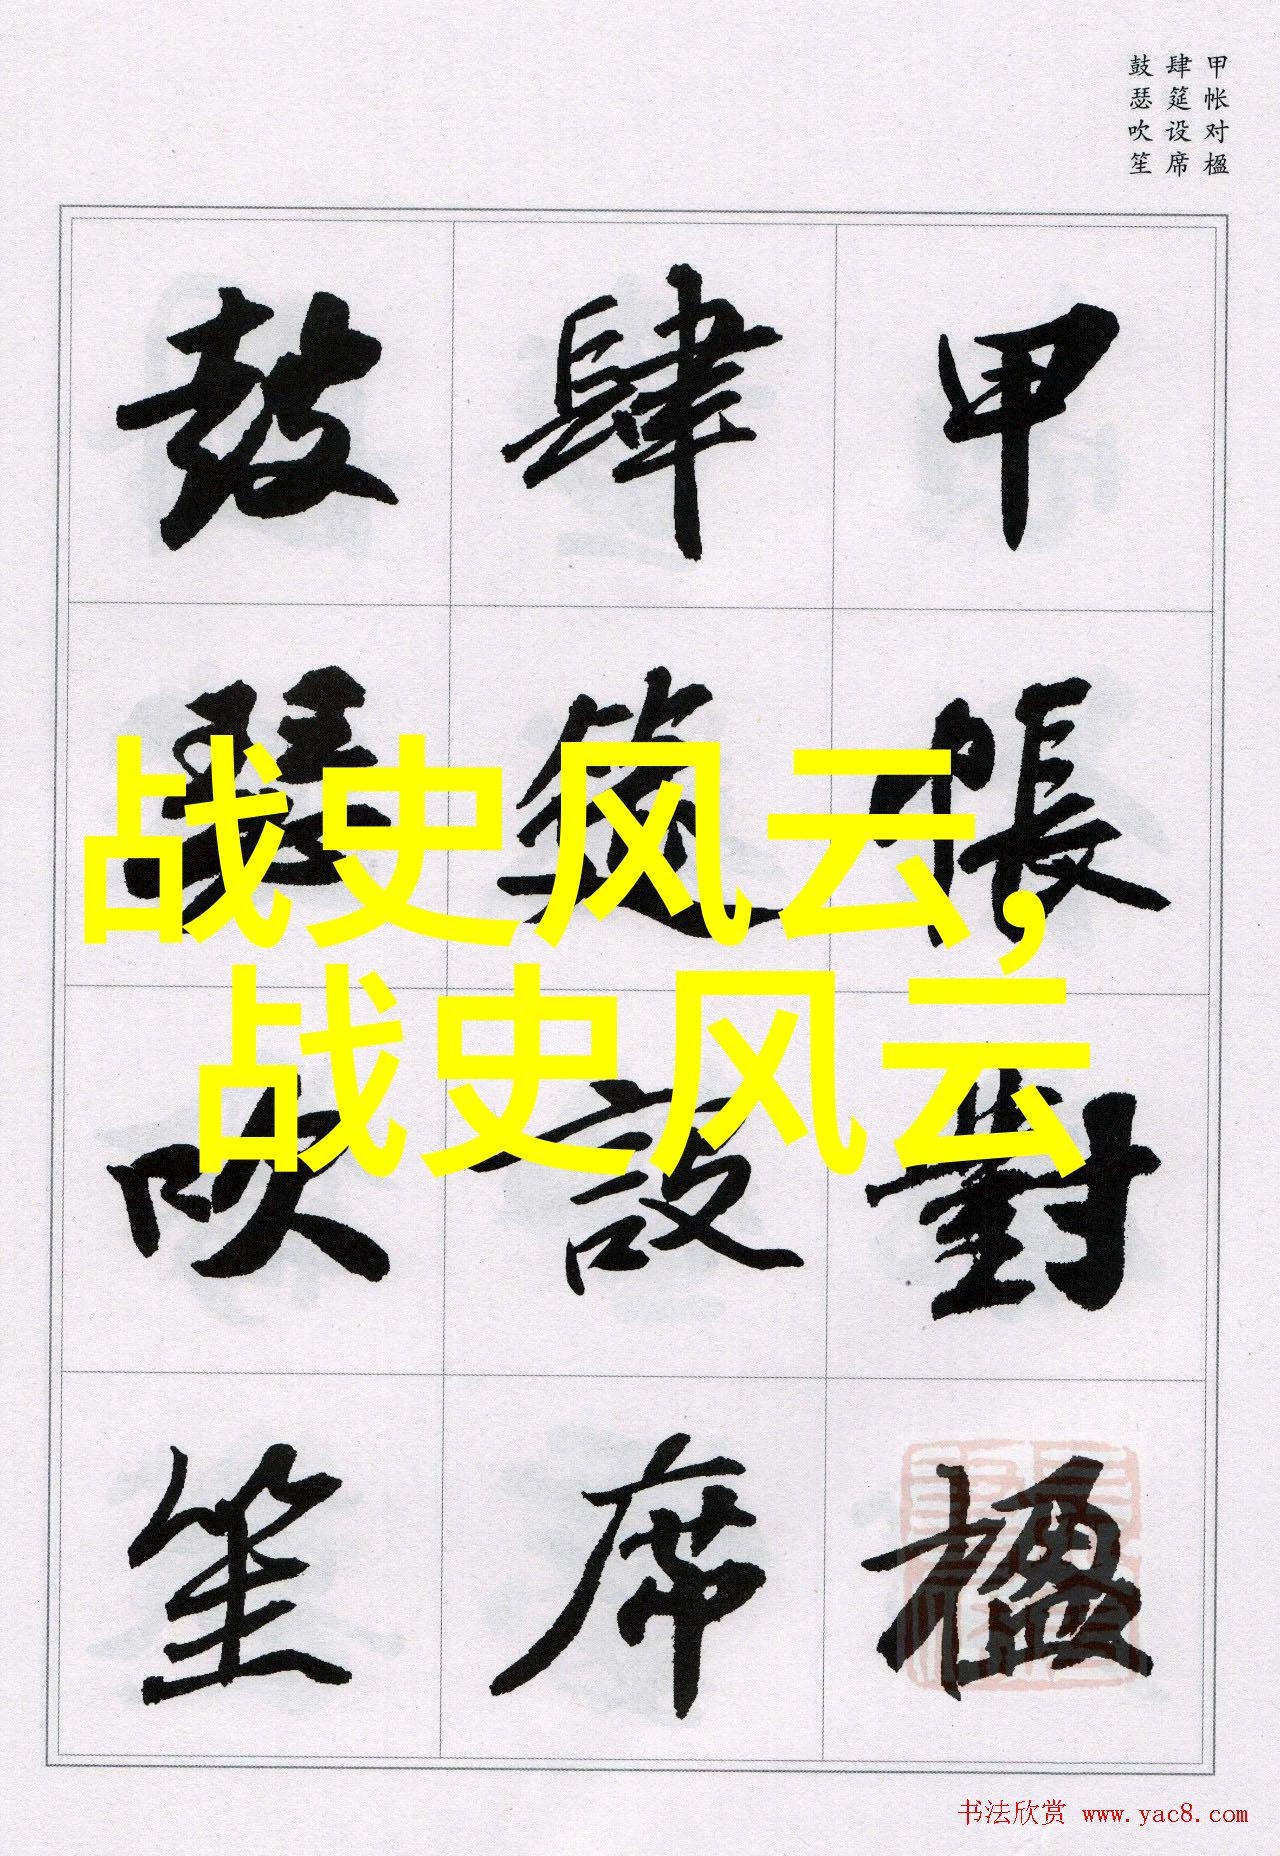 甲帐对楹
肆筵设席
鼓瑟吹笙
甲帳對楹
肆筵設席
鼓瑟吹笙
战史风云,
战史风云
书法欣赏 www.yac8.com